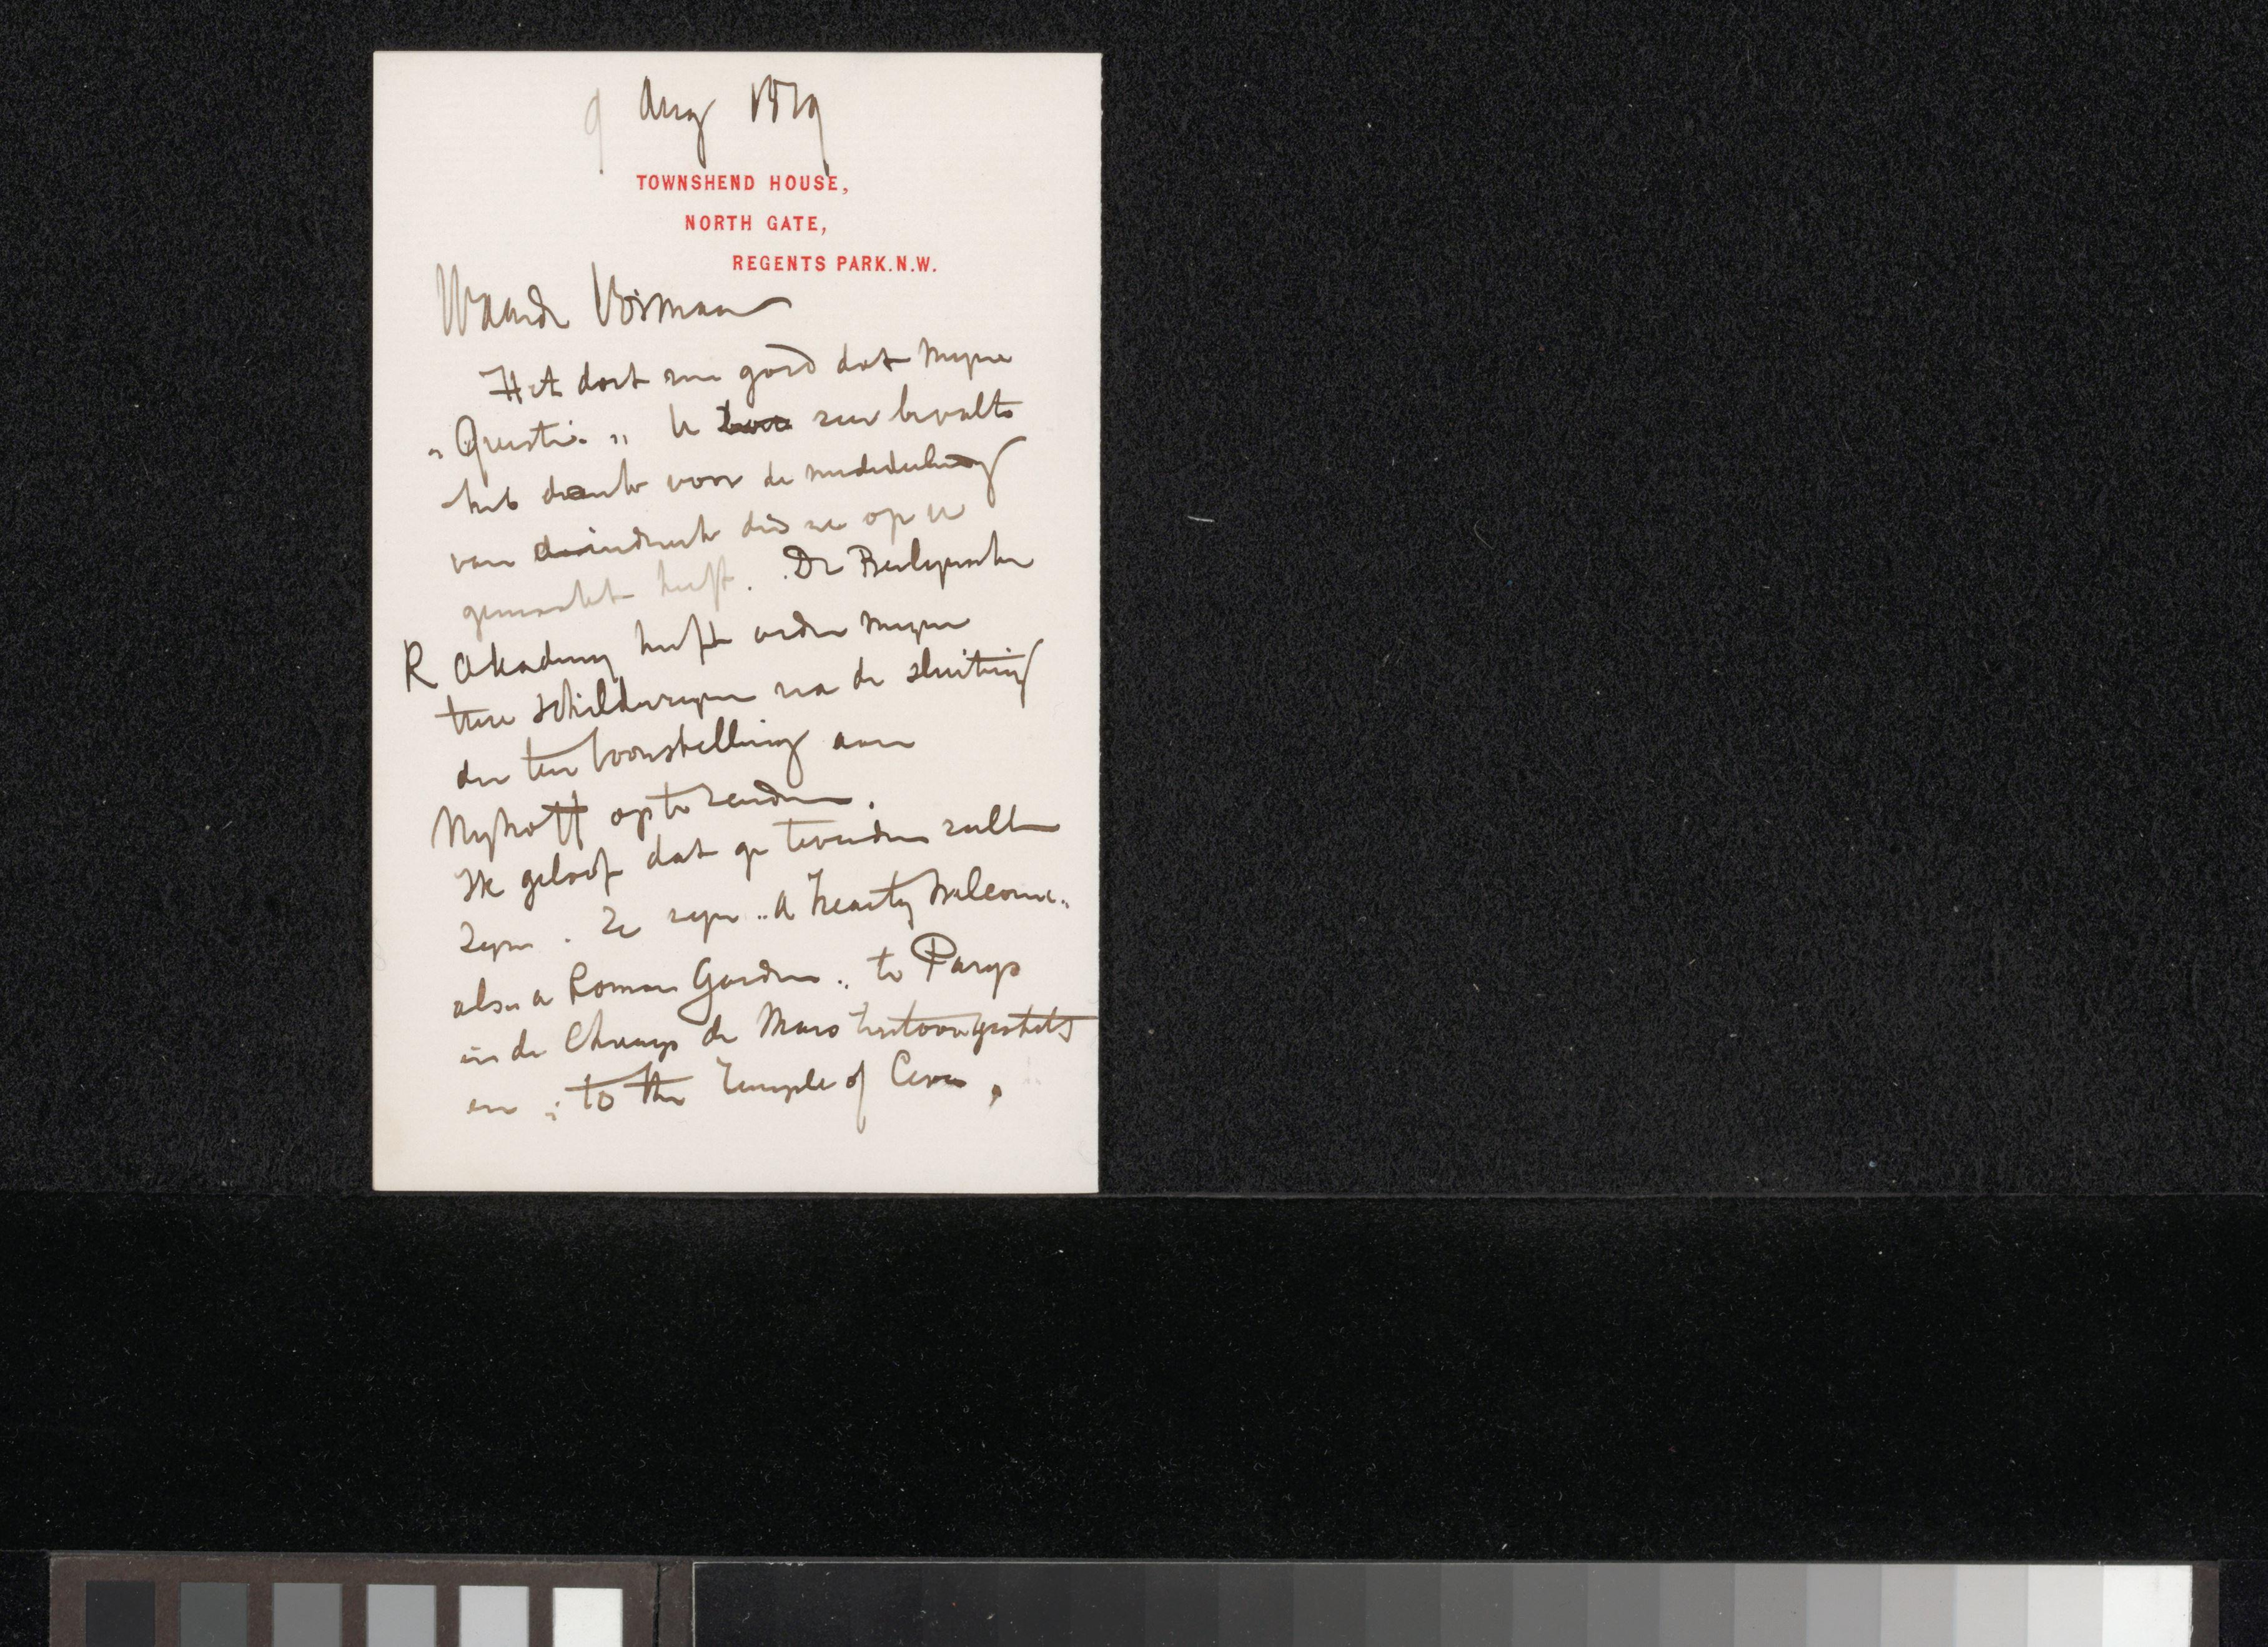 9 Aug 1879
TOWNSHEND HOUSE,
NORTH GATE,
REGENTS PARK.N.W.
Waarde Vosmaer
Het doet me goed dat myne
"Questie" U zeer bevalt
heb dank voor de mededeeling
van indruk die ze op u
gemaakt heeft. De
R Akademy heeft order myne
twee schilderyen na de sluiting
der ten toonstelling aan
Nyhoff op te zenden.
Ik geloof dat ge tevreden zult
zyn. Ze zyn "A Hearty Welcome"
also a Roman Garden" te Parys
in de Champ de Mars tentoongesteld
en "to the Temple of Ceres"